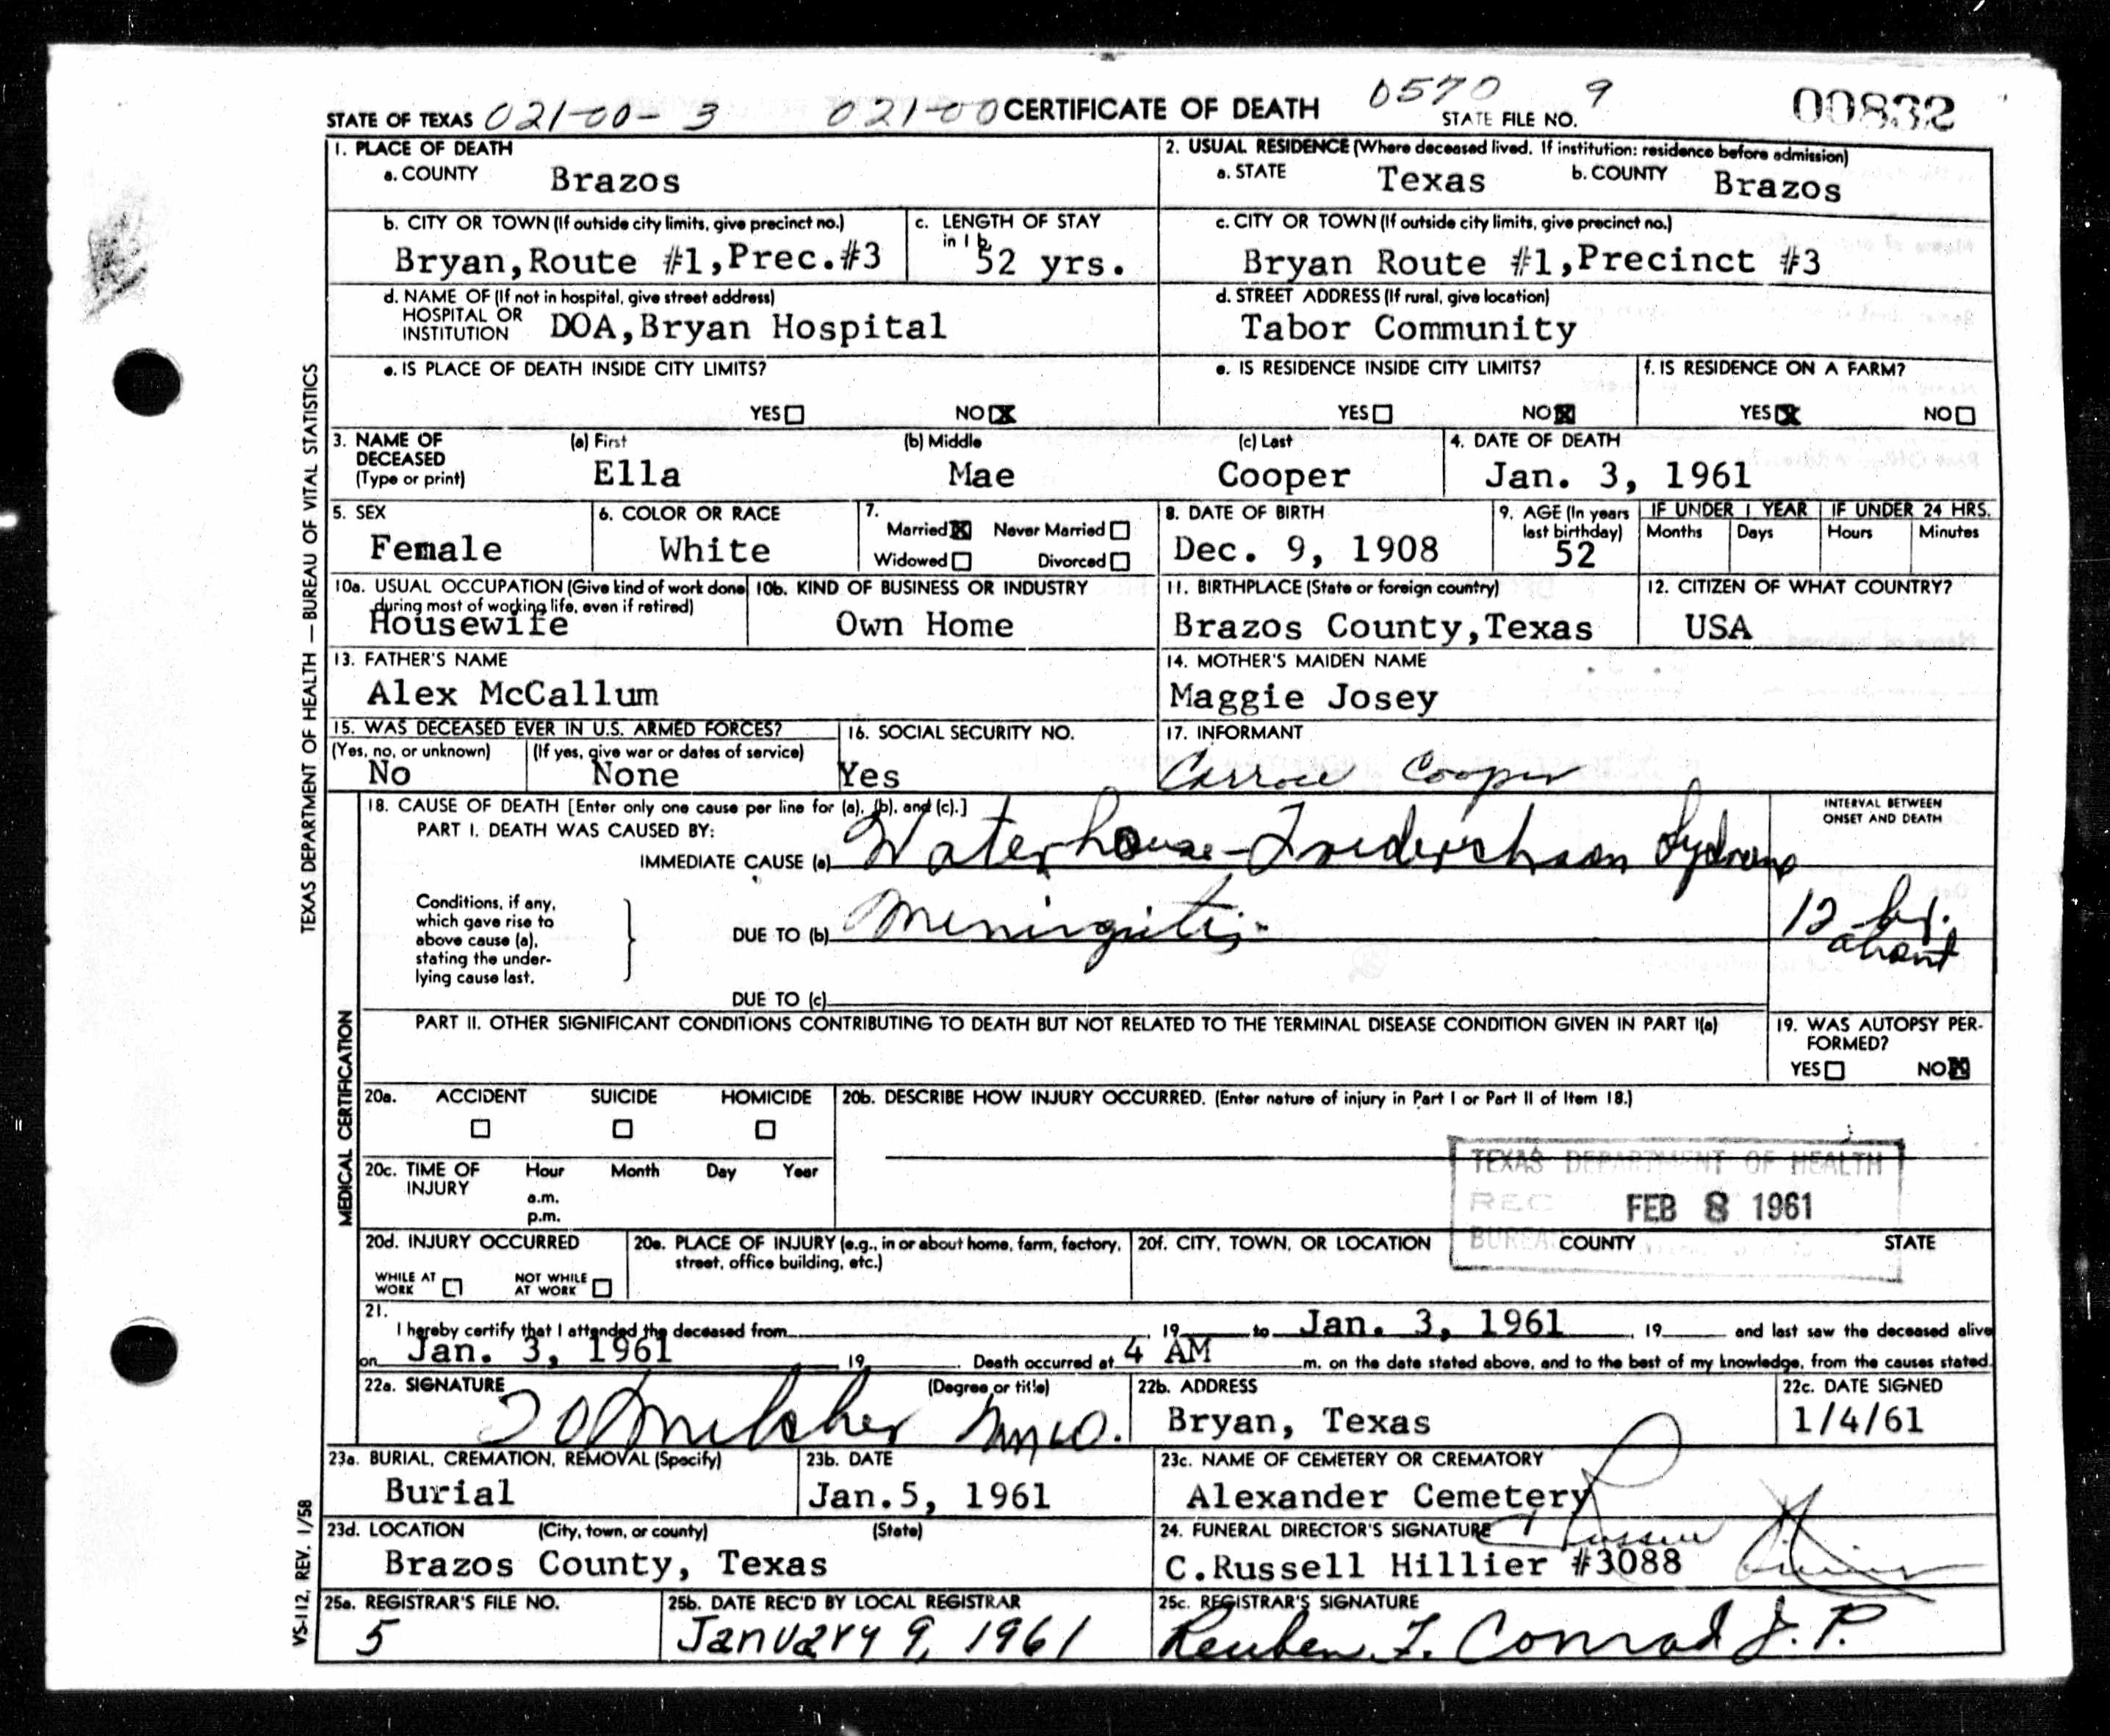 STATE OF TEXAS 021-00-3 021-00 CERTIFICATE OF DEATH 0570 9 STATE FILE NO. 00832
1. PLACE OF DEATH
a. COUNTY Brazos
2. USUAL RESIDENCE (Where deceased lived. If institution: residence before admission)
a. STATE Texas b. COUNTY Brazos
b. CITY OR TOWN (If outside city limits, give precinct no.)
Bryan,Route #1,Prec.#3
c. LENGTH OF STAY
in 1 b.
52 yrs.
c. CITY OR TOWN (If outside city limits, give precinct no.)
Bryan Route #1,Precinct #3
d. NAME OF (If not in hospital, give street address)
HOSPITAL OR
INSTITUTION DOA,Bryan Hospital
d. STREET ADDRESS (If rural, give location)
Tabor Community
e. IS PLACE OF DEATH INSIDE CITY LIMITS?
YES☐ NO☒
e. IS RESIDENCE INSIDE CITY LIMITS?
YES☐ NO☒
f. IS RESIDENCE ON A FARM?
YES☒ NO☐
3. NAME OF
DECEASED
(Type or print)
(a) First
Ella
(b) Middle
Mae
(c) Last
Cooper
4. DATE OF DEATH
Jan. 3, 1961
5. SEX
Female
6. COLOR OR RACE
White
7.
Married☒ Never Married☐
Widowed☐ Divorced☐
8. DATE OF BIRTH
Dec. 9, 1908
9. AGE (In years
last birthday)
52
IF UNDER 1 YEAR
Months Days
IF UNDER 24 HRS.
Hours Minutes
10a. USUAL OCCUPATION (Give kind of work done
during most of working life, even if retired)
Housewife
10b. KIND OF BUSINESS OR INDUSTRY
Own Home
11. BIRTHPLACE (State or foreign country)
Brazos County,Texas
12. CITIZEN OF WHAT COUNTRY?
USA
13. FATHER'S NAME
Alex McCallum
14. MOTHER'S MAIDEN NAME
Maggie Josey
15. WAS DECEASED EVER IN U.S. ARMED FORCES?
(Yes, no, or unknown) (If yes, give war or dates of service)
No None
16. SOCIAL SECURITY NO.
Yes
17. INFORMANT
Cooper
18. CAUSE OF DEATH [Enter only one cause per line for (a), (b), and (c).]
PART I. DEATH WAS CAUSED BY:
IMMEDIATE CAUSE (a) Waterhouse-
INTERVAL BETWEEN
ONSET AND DEATH
Conditions, if any,
which gave rise to
above cause (a),
stating the under-
lying cause last.
DUE TO (b) Meningitis
12 hr.
about
DUE TO (c)
PART II. OTHER SIGNIFICANT CONDITIONS CONTRIBUTING TO DEATH BUT NOT RELATED TO THE TERMINAL DISEASE CONDITION GIVEN IN PART I(a)
19. WAS AUTOPSY PER-
FORMED?
YES☐ NO☒
20a. ACCIDENT SUICIDE HOMICIDE
☐ ☐ ☐
20b. DESCRIBE HOW INJURY OCCURRED. (Enter nature of injury in Part I or Part II of Item 18.)
TEXAS DEPARTMENT OF HEALTH
REC FEB 8 1961
BUREAU
20c. TIME OF
INJURY
Hour Month Day Year
a.m.
p.m.
20d. INJURY OCCURRED
WHILE AT
WORK ☐
NOT WHILE
AT WORK ☐
20e. PLACE OF INJURY (e.g., in or about home, farm, factory,
street, office building, etc.)
20f. CITY, TOWN, OR LOCATION COUNTY STATE
21.
I hereby certify that I attended the deceased from , 19 to Jan. 3, 1961 , 19 and last saw the deceased alive
on Jan. 3, 1961 19 . Death occurred at 4 AM m. on the date stated above, and to the best of my knowledge, from the causes stated.
22a. SIGNATURE (Degree or title)
22b. ADDRESS
Bryan, Texas
22c. DATE SIGNED
1/4/61
23a. BURIAL, CREMATION, REMOVAL (Specify)
Burial
23b. DATE
Jan.5, 1961
23c. NAME OF CEMETERY OR CREMATORY
Alexander Cemetery
23d. LOCATION (City, town, or county) (State)
Brazos County, Texas
24. FUNERAL DIRECTOR'S SIGNATURE
C.Russell Hillier #3088
25a. REGISTRAR'S FILE NO.
5
25b. DATE REC'D BY LOCAL REGISTRAR
January 9, 1961
25c. REGISTRAR'S SIGNATURE
Reuben F. Conrad J.P.
TEXAS DEPARTMENT OF HEALTH — BUREAU OF VITAL STATISTICS
MEDICAL CERTIFICATION
VS-112, REV. 1/58